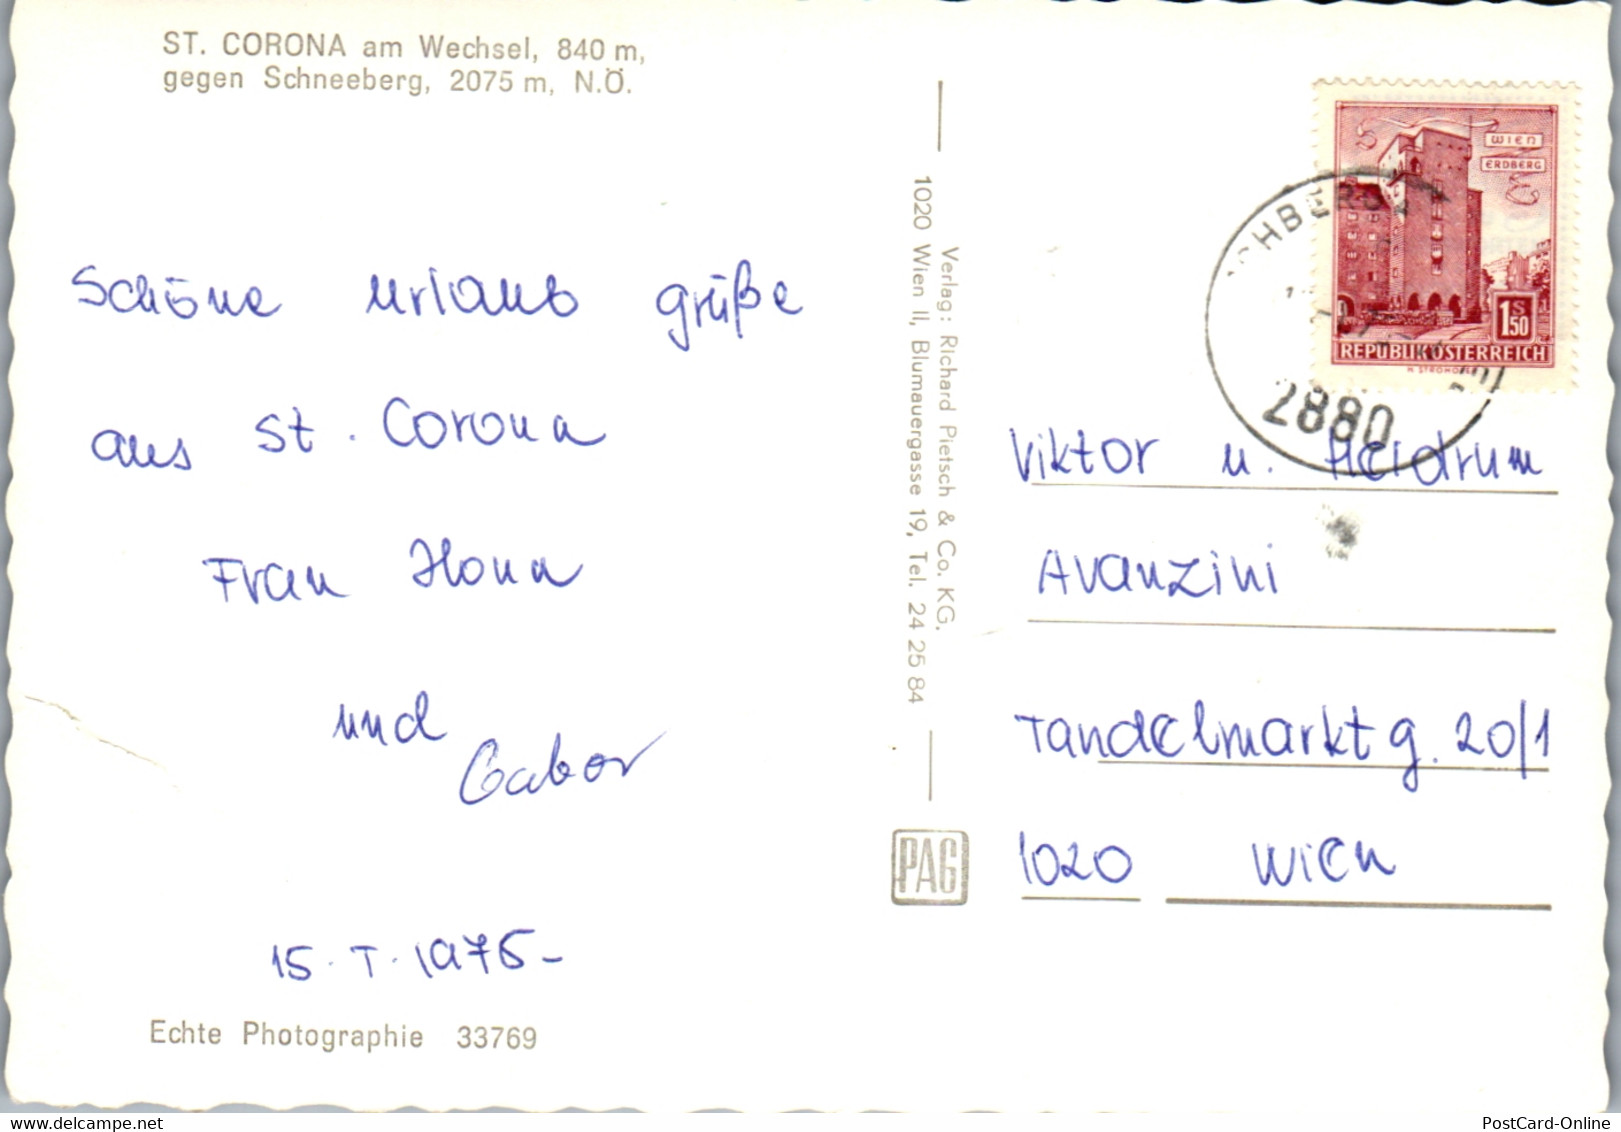 ST. CORONA am Wechsel, 840 m,
gegen Schneeberg, 2075 m, N.Ö.
Schöne urlaub grüße
aus St. Corona
Frau Ilona
und
Gabor
15. T. 1975-
Echte Photographie 33769
Verlag: Richard Pietsch & Co. KG.
1020 Wien II, Blumauergasse 19, Tel. 24 25 84
PAG
WIEN
ERDBERG
1S50
REPUBLIK ÖSTERREICH
2880
Viktor u. Heidrum
Avanzini
Tandelmarktg. 20/1
1020 Wien
PostCard-Online